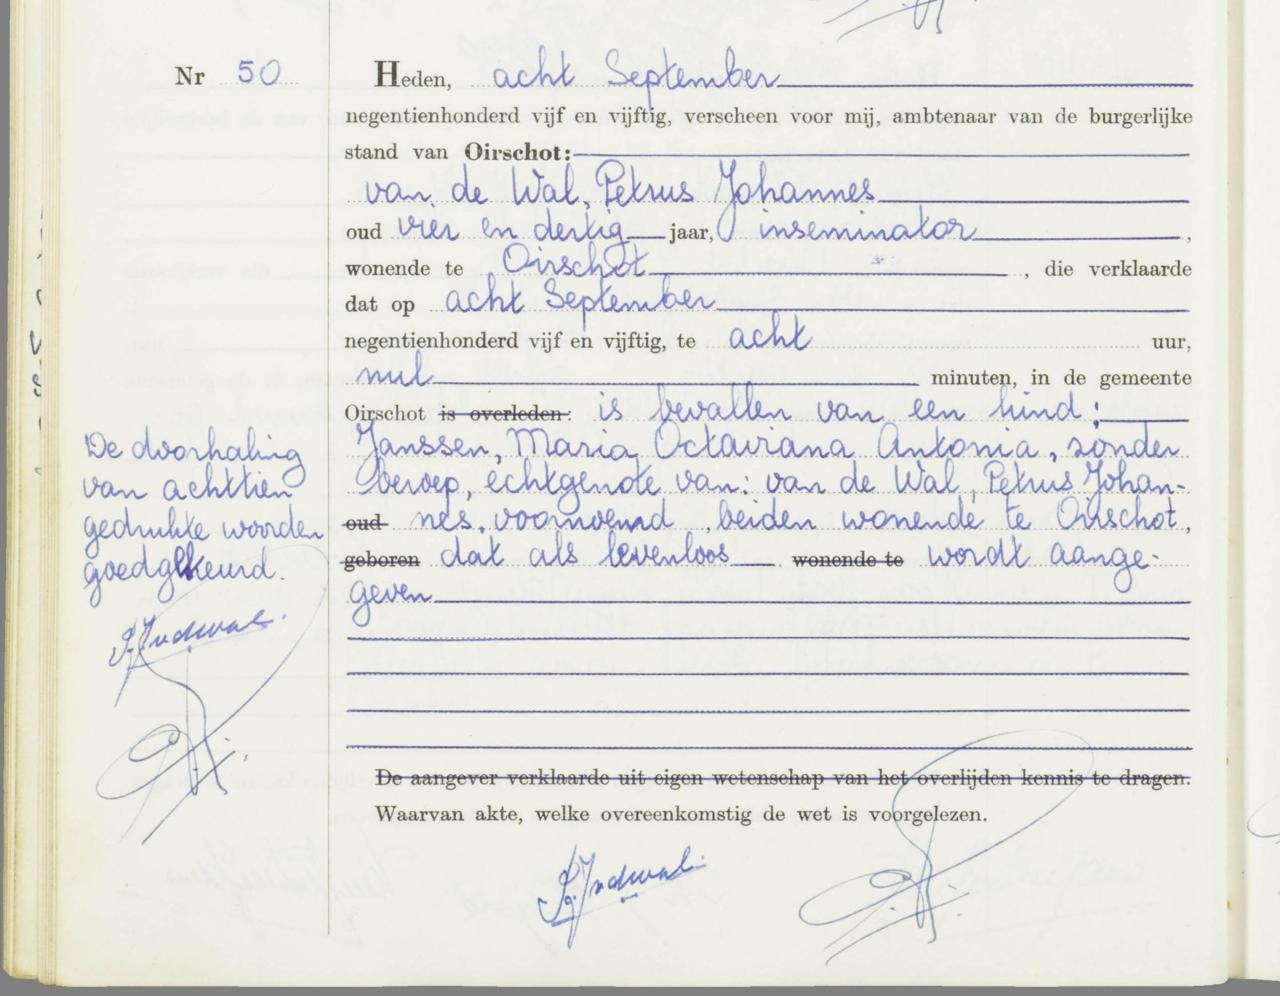 Nr 50
Heden, acht September
negentienhonderd vijf en vijftig, verscheen voor mij, ambtenaar van de burgerlijke
stand van Oirschot:
van de Wal, Petrus Johannes
oud vier en dertig jaar, inseminator,
wonende te Oirschot, die verklaarde
dat op acht September
negentienhonderd vijf en vijftig, te acht uur,
nul minuten, in de gemeente
Oirschot is overleden: is bevallen van een kind:
Janssen, Maria Octaviana Antonia, zonder
beroep, echtgenote van: van de Wal, Petrus Johan-
oud nes, voornoemd, beiden wonende te Oirschot,
geboren dat als levenloos wonende te wordt aange-
geven
De aangever verklaarde uit eigen wetenschap van het overlijden kennis te dragen.
Waarvan akte, welke overeenkomstig de wet is voorgelezen.
De doorhaling
van achttien
gedrukte woorden
goedgekeurd.